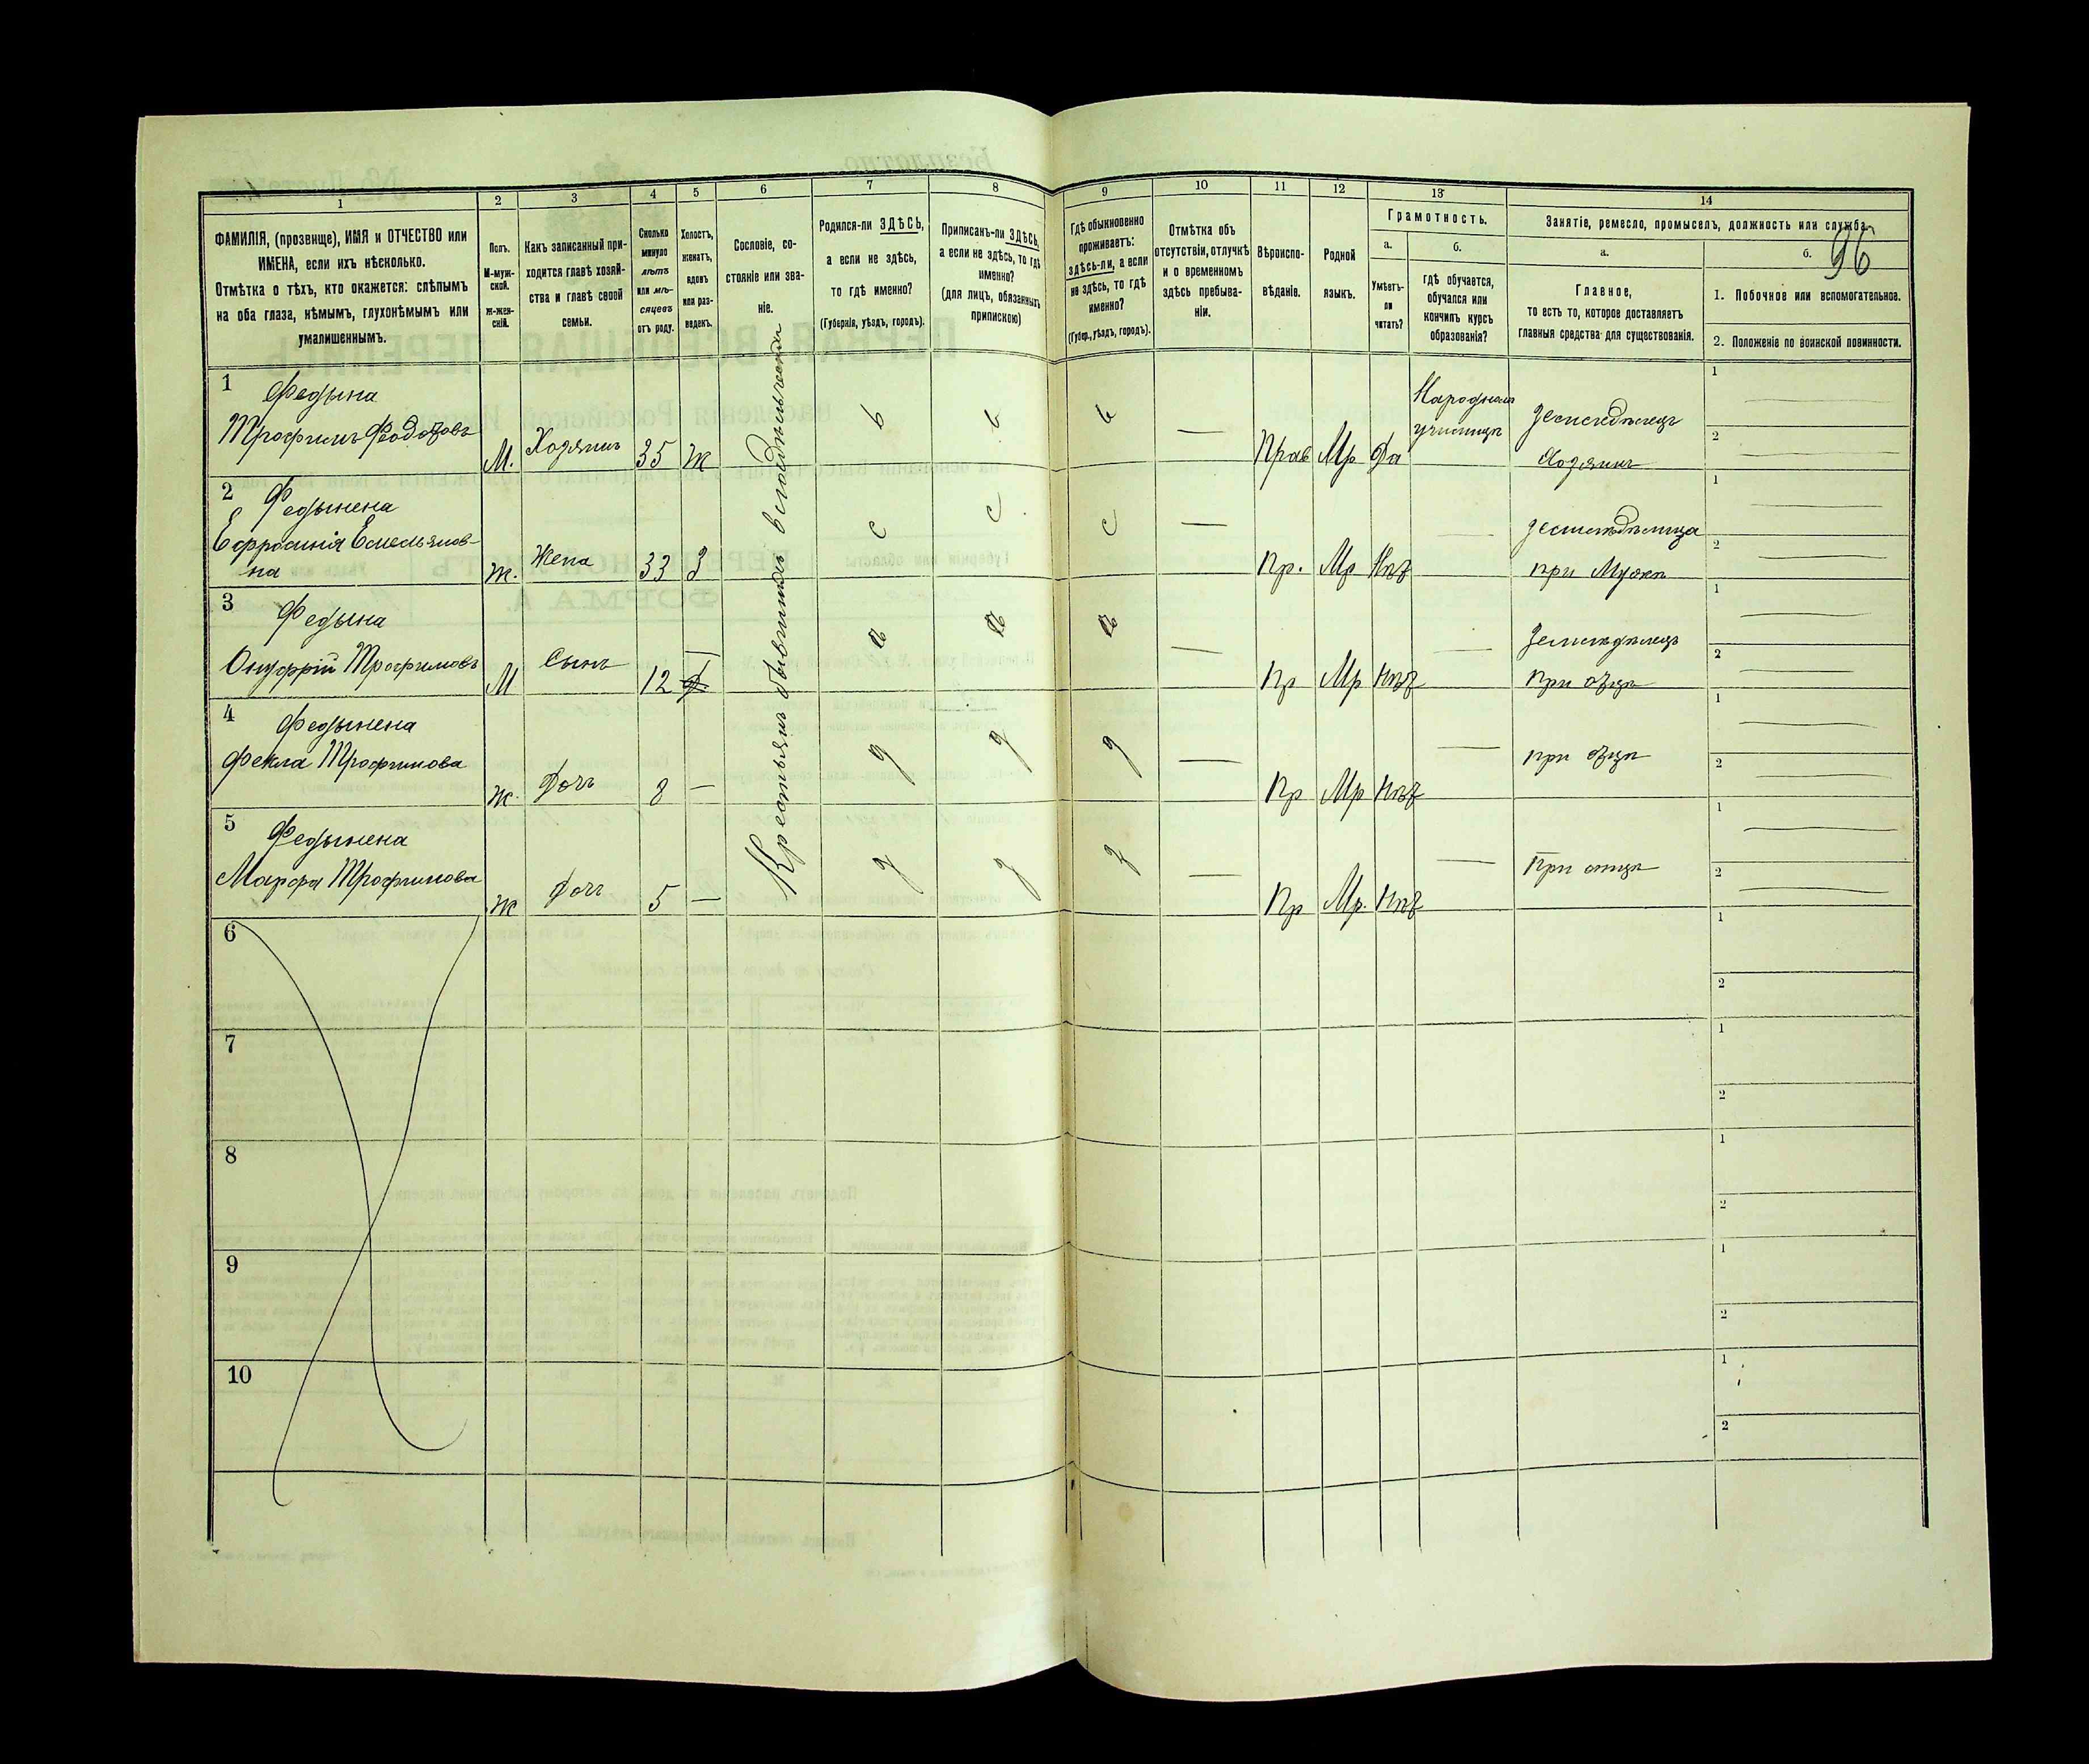 96
1 2 3 4 5 6 7 8 9 10 11 12 13 14
ФАМИЛІЯ, (прозвище), ИМЯ и ОТЧЕСТВО или
ИМЕНА, если ихъ нѣсколько.
Отмѣтка о тѣхъ, кто окажется: слѣпымъ
на оба глаза, нѣмымъ, глухонѣмымъ или
умалишеннымъ.
Полъ.
М-муж-
ской.
Ж-жен-
скій.
Какъ записанный при-
ходится главѣ хозяй-
ства и главѣ своей
семьи.
Сколько
минуло
лѣтъ
или мѣ-
сяцевъ
отъ роду.
Холостъ,
женатъ,
вдовъ
или раз-
веденъ.
Сословіе, со-
стояніе или зва-
ніе.
Родился-ли ЗДѢСЬ,
а если не здѣсь,
то гдѣ именно?
(Губернія, уѣздъ, городъ).
Приписанъ-ли ЗДѢСЬ,
а если не здѣсь, то гдѣ
именно?
(для лицъ, обязанныхъ
припискою)
Гдѣ обыкновенно
проживаетъ:
здѣсь-ли, а если
не здѣсь, то гдѣ
именно?
(Губер., уѣздъ, городъ).
Отмѣтка объ
отсутствіи, отлучкѣ
и о временномъ
здѣсь пребыва-
ніи.
Вѣроиспо-
вѣданіе.
Родной
языкъ.
Грамотность.
а.
Умѣетъ-
ли
читать?
б.
гдѣ обучается,
обучался или
кончилъ курсъ
образованія?
Занятіе, ремесло, промыселъ, должность или служба.
а.
Главное,
то есть то, которое доставляетъ
главныя средства для существованія.
б.
1. Побочное или вспомогательное.
2. Положеніе по воинской повинности.
Крестьянъ бывшихъ
1 Федына
Трофимъ Феодотовъ
М. Хозяинъ 35 Ж
Прав Мр Да
Народномъ
училищѣ
Земледѣлецъ
Хозяинъ
1
2
2 Федынена
Ефросинія Емельянов-
на
Ж. Жена 33 З
с с с
Пр. Мр Нѣт
Земледѣлица
при Мужѣ
1
2
3 Федына
Онуфрій Трофимовъ
М Сынъ 12
Пр Мр Нѣт
Земледѣлецъ
при отцѣ
1
2
4 Федынена
Фекла Трофимова
Ж. Дочь 8 —
д д д
Пр Мр Нѣт
при отцѣ
1
2
5 Федынена
Марфа Трофимова
Ж Дочь 5 —
д д д
Пр Мр. Нѣт
При отцѣ
1
2
6
1
2
7
1
2
8
1
2
9
1
2
10
1
2